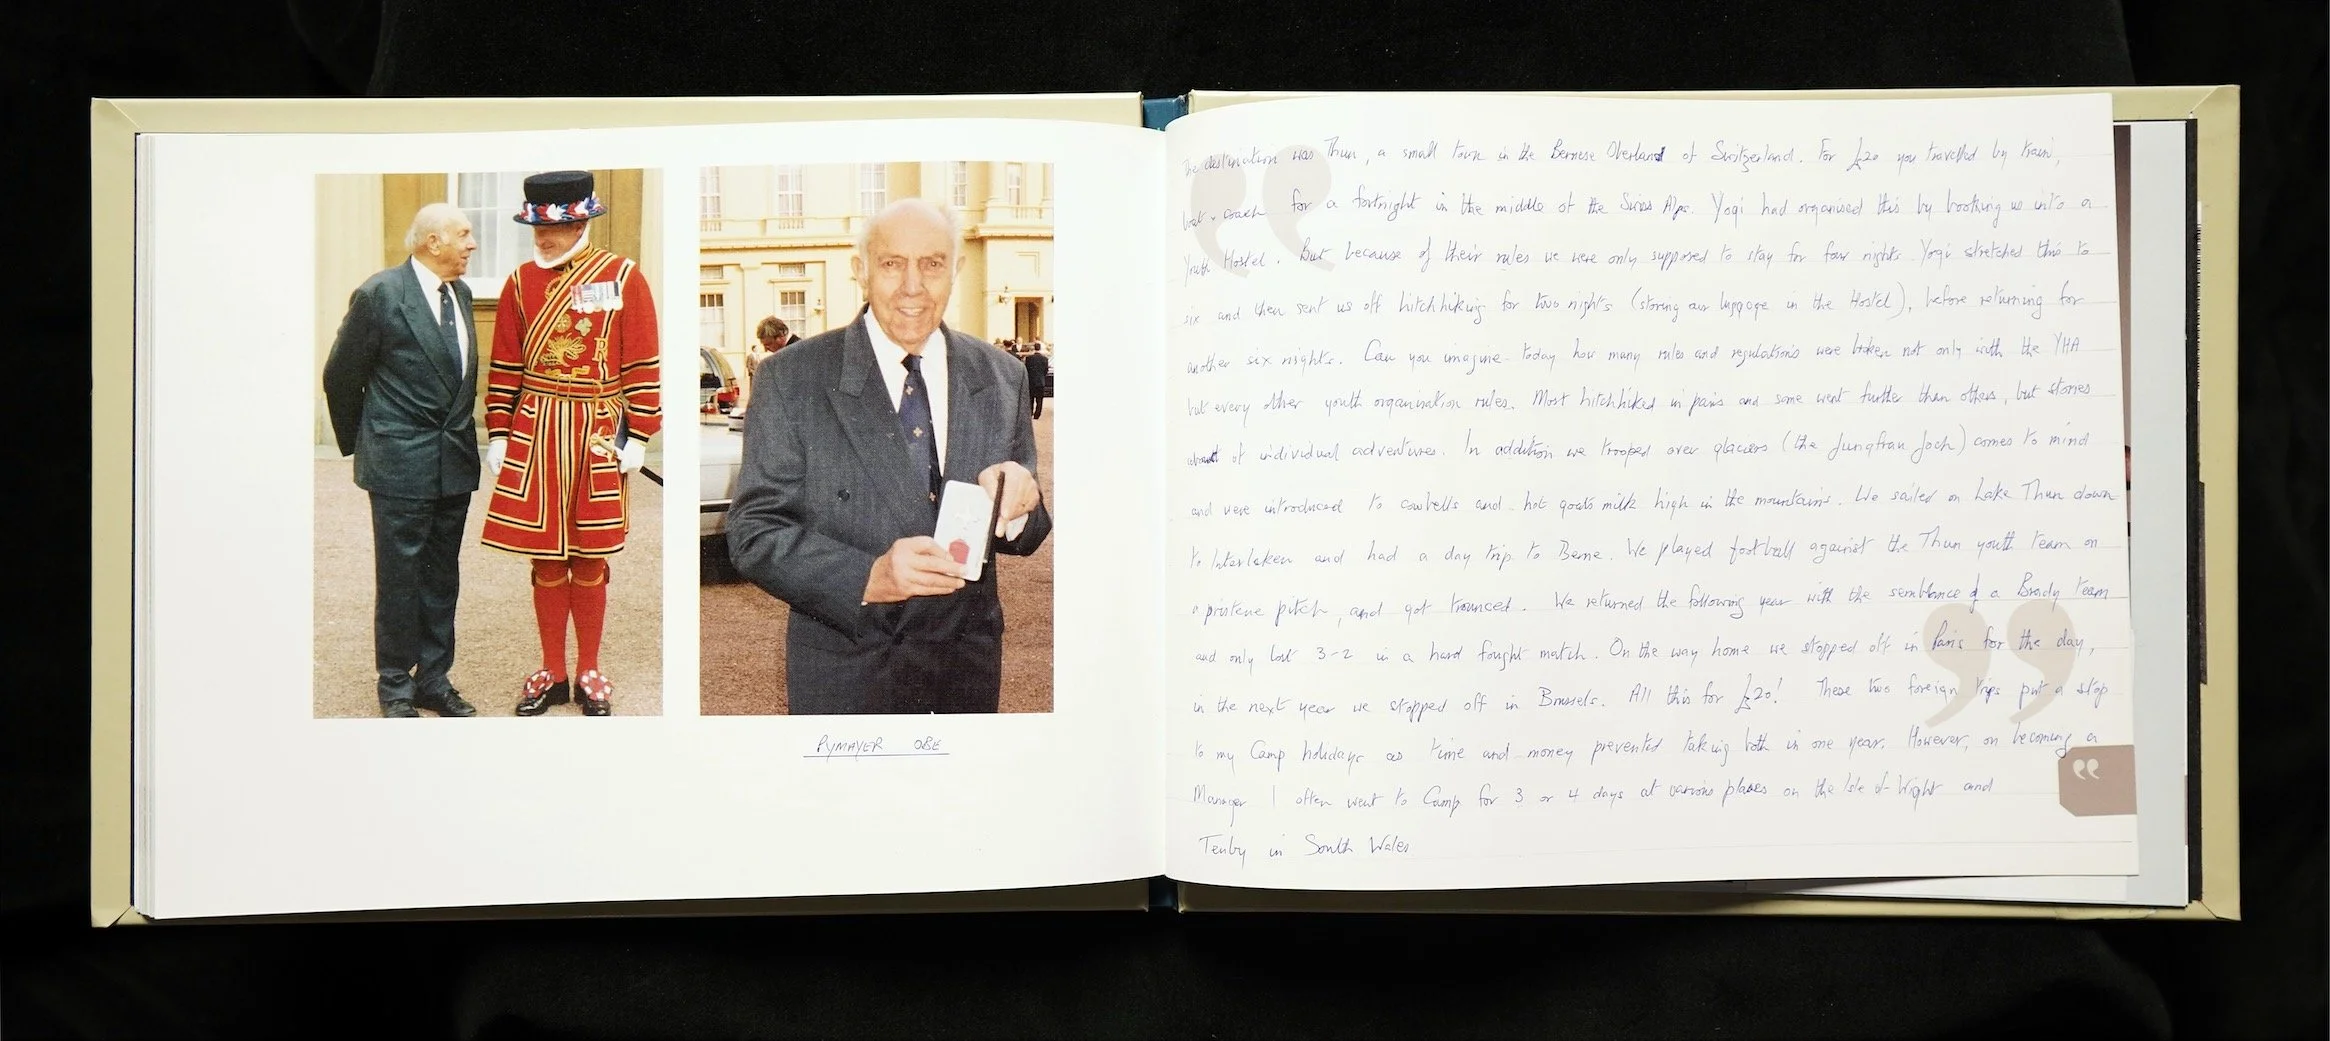 PYMAYER OBE
The destination was Thun, a small town in the Bernese Oberland of Switzerland. For £20 you travelled by train,
boat + coach for a fortnight in the middle of the Swiss Alps. Yogi had organised this by booking us into a
Youth Hostel. But because of their rules we were only supposed to stay for four nights. Yogi stretched this to
six and then sent us off hitchhiking for two nights (storing our luggage in the Hostel), before returning for
another six nights. Can you imagine today how many rules and regulations were broken not only with the YHA
but every other youth organisation rules. Most hitchhiked in pairs and some went further than others, but stories
of individual adventures. In addition we trooped over glaciers (the Jungfrau Joch) comes to mind
and were introduced to cowbells and hot goats milk high in the mountains. We sailed on Lake Thun down
to Interlaken and had a day trip to Berne. We played football against the Thun youth team on
a pristene pitch, and got trounced. We returned the following year with the semblance of a Brady team
and only lost 3-2 in a hard fought match. On the way home we stopped off in Paris for the day,
in the next year we stopped off in Brussels. All this for £20! These two foreign trips put a stop
to my Camp holidays as time and money prevented taking both in one year. However, on becoming a
Manager I often went to Camp for 3 or 4 days at various places on the Isle of Wight and
Tenby in South Wales